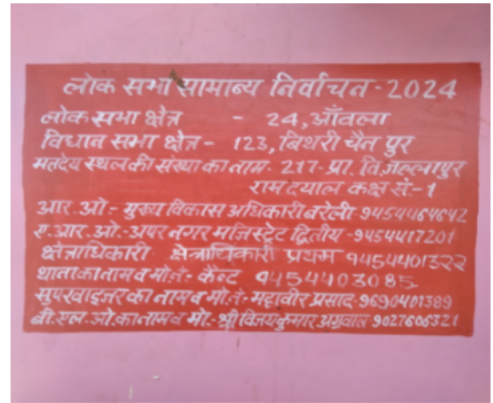 लोक सभा सामान्य निर्वाचन-2024
लोक सभा क्षेत्र - 24, आँवला
विधान सभा क्षेत्र- 123, बिथरी चैन पुर
मतदेय स्थल की संख्या का नाम- 217- प्रा. वि. जल्लापुर
राम दयाल कक्ष सं.-1
आर. ओ.- मुख्य विकास अधिकारी बरेली-9454464642
ए. आर. ओ.-अपर नगर मजिस्ट्रेट द्वितीय-9454417201
क्षेत्राधिकारी क्षेत्राधिकारी प्रथम 9454401322
थाना का नाम व मो.नं.- कैन्ट 9454403085
सुपरवाइजर का नाम व मो.नं.- महावीर प्रसाद-9690401389
बी. एल. ओ. का नाम व मो.- श्री विजय कुमार अग्रवाल 9027606321